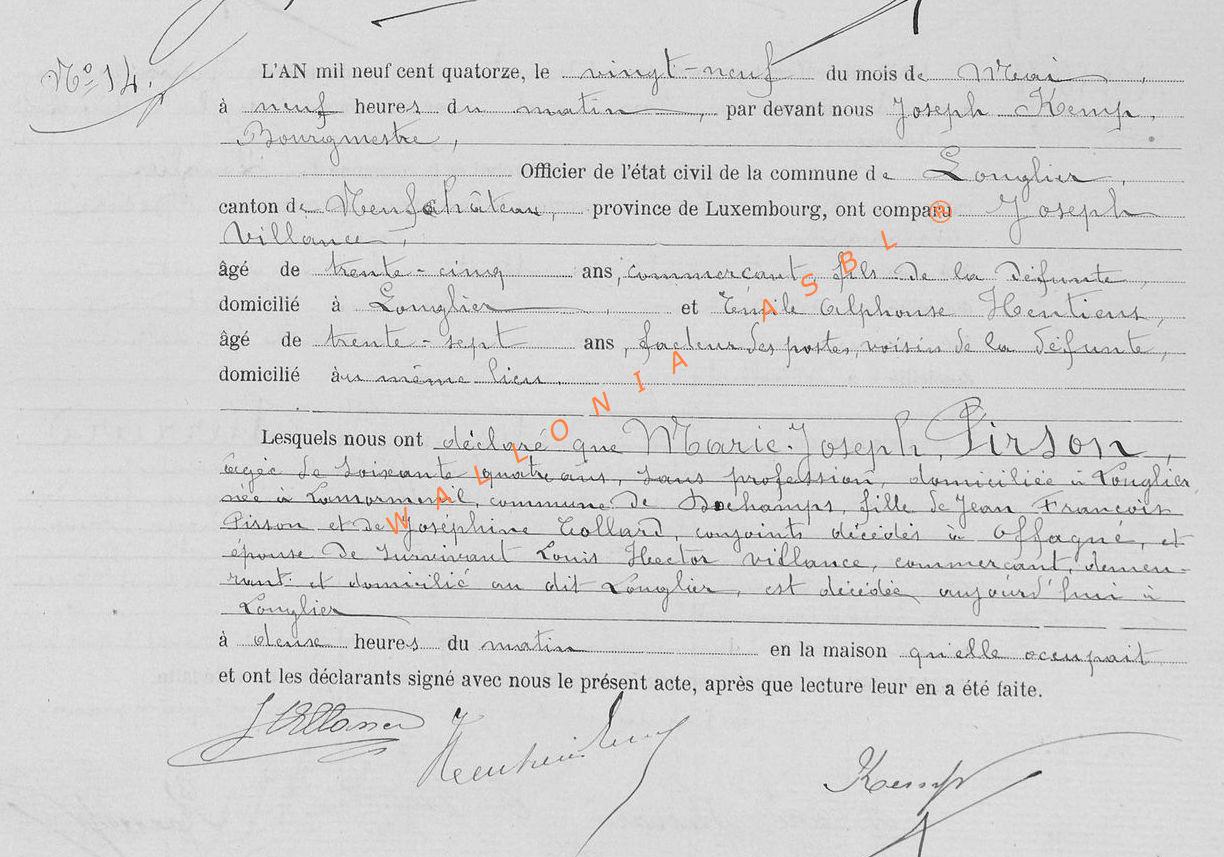 N° 14.
L'AN mil neuf cent quatorze, le vingt-neuf du mois de Mai,
à neuf heures du matin, par devant nous Joseph Kemp,
Bourgmestre,
Officier de l'état civil de la commune de Longlier,
canton de Neufchâteau, province de Luxembourg, ont comparu Joseph
Villance,
âgé de trente-cinq ans, commerçant, fils de la défunte,
domicilié à Longlier, et Emile Alphonse
âgé de trente-sept ans, facteur des postes, voisin de la défunte,
domicilié au même lieu
Lesquels nous ont déclaré que Marie-Joseph Pirson,
âgée de soixante quatre ans, sans profession, domiciliée à Longlier,
née à Lansormenil, commune de Dochamps, fille de Jean François
Pirson et de Joséphine Collard, conjoints décédés à Offagne, et
épouse de survivant Louis Hector Villance, commerçant, demeu-
rant et domicilié au dit Longlier, est décédée aujourd'hui à
Longlier
à deux heures du matin en la maison qu'elle occupait
et ont les déclarants signé avec nous le présent acte, après que lecture leur en a été faite.
JVillance
Kemp
WALLONIA ASBL ®